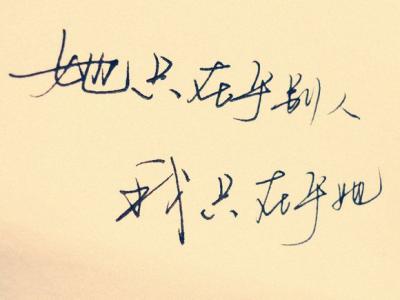 她只在乎别人
我只在乎她